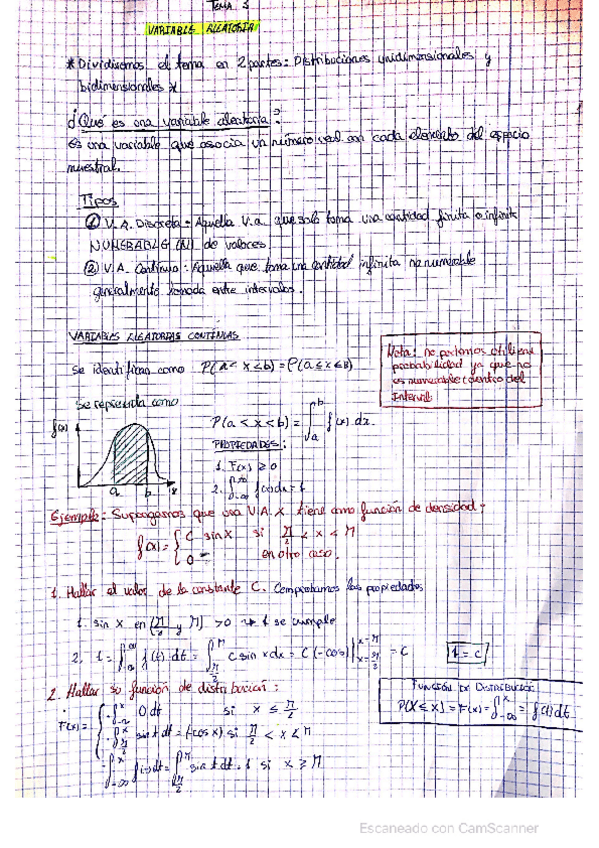 TEMA 3
VARIABLE ALEATORIA
* Dividiremos el tema en 2 partes: Distribuciones unidimensionales y
bidimensionales *
¿Que es una variable aleatoria?
Es una variable que asocia un número real con cada elemento del espacio
muestral.
Tipos
① V.A. Discreta = Aquella v.a. que solo toma una cantidad finita o infinita
NUMERABLE (N) de valores.
② V.A. Continua = Aquella que toma una cantidad infinita no numerable
generalmente tomada entre intervalos.
VARIABLES ALEATORIAS CONTINUAS
Se identifican como P(a < x < b) = P(a ≤ x ≤ b)
Nota: no podemos utilizar
probabilidad ya que no
es numerable (dentro del
Intervalo
Se representa como
f(x)
a b x
P(a < x < b) = ∫_a^b f(x) dx.
PROPIEDADES:
1. F(x) ≥ 0
2. ∫_{-∞}^{∞} f(x)dx = 1
Ejemplo: Supongamos que una V.A. X tiene como función de densidad:
f(x) = { C sin x si π/2 < x < π
0 en otro caso.
1. Hallar el valor de la constante C. Comprobamos las propiedades
1. sin x en [π/2 y π] > 0 → 1 se cumple
2. 1 = ∫_{-∞}^{∞} f(t) dt = ∫_{π/2}^{π} C sin x dx = C (-cos) |_{x=π/2}^{x=π} = C
1 = C
2. Hallar su función de distribución:
FUNCIÓN DE DISTRIBUCIÓN
P[X ≤ x] = F(x) = ∫_{-∞}^{x} = f(t)dt
F(x) = { ∫_{-∞}^{x} 0 dt si x ≤ π/2
∫_{π/2}^{x} sin t dt = (-cos x) si π/2 < x < π
∫_{-∞}^{x} f(t)dt = ∫_{π/2}^{π} sin t dt = 1 si x ≥ π
Escaneado con CamScanner